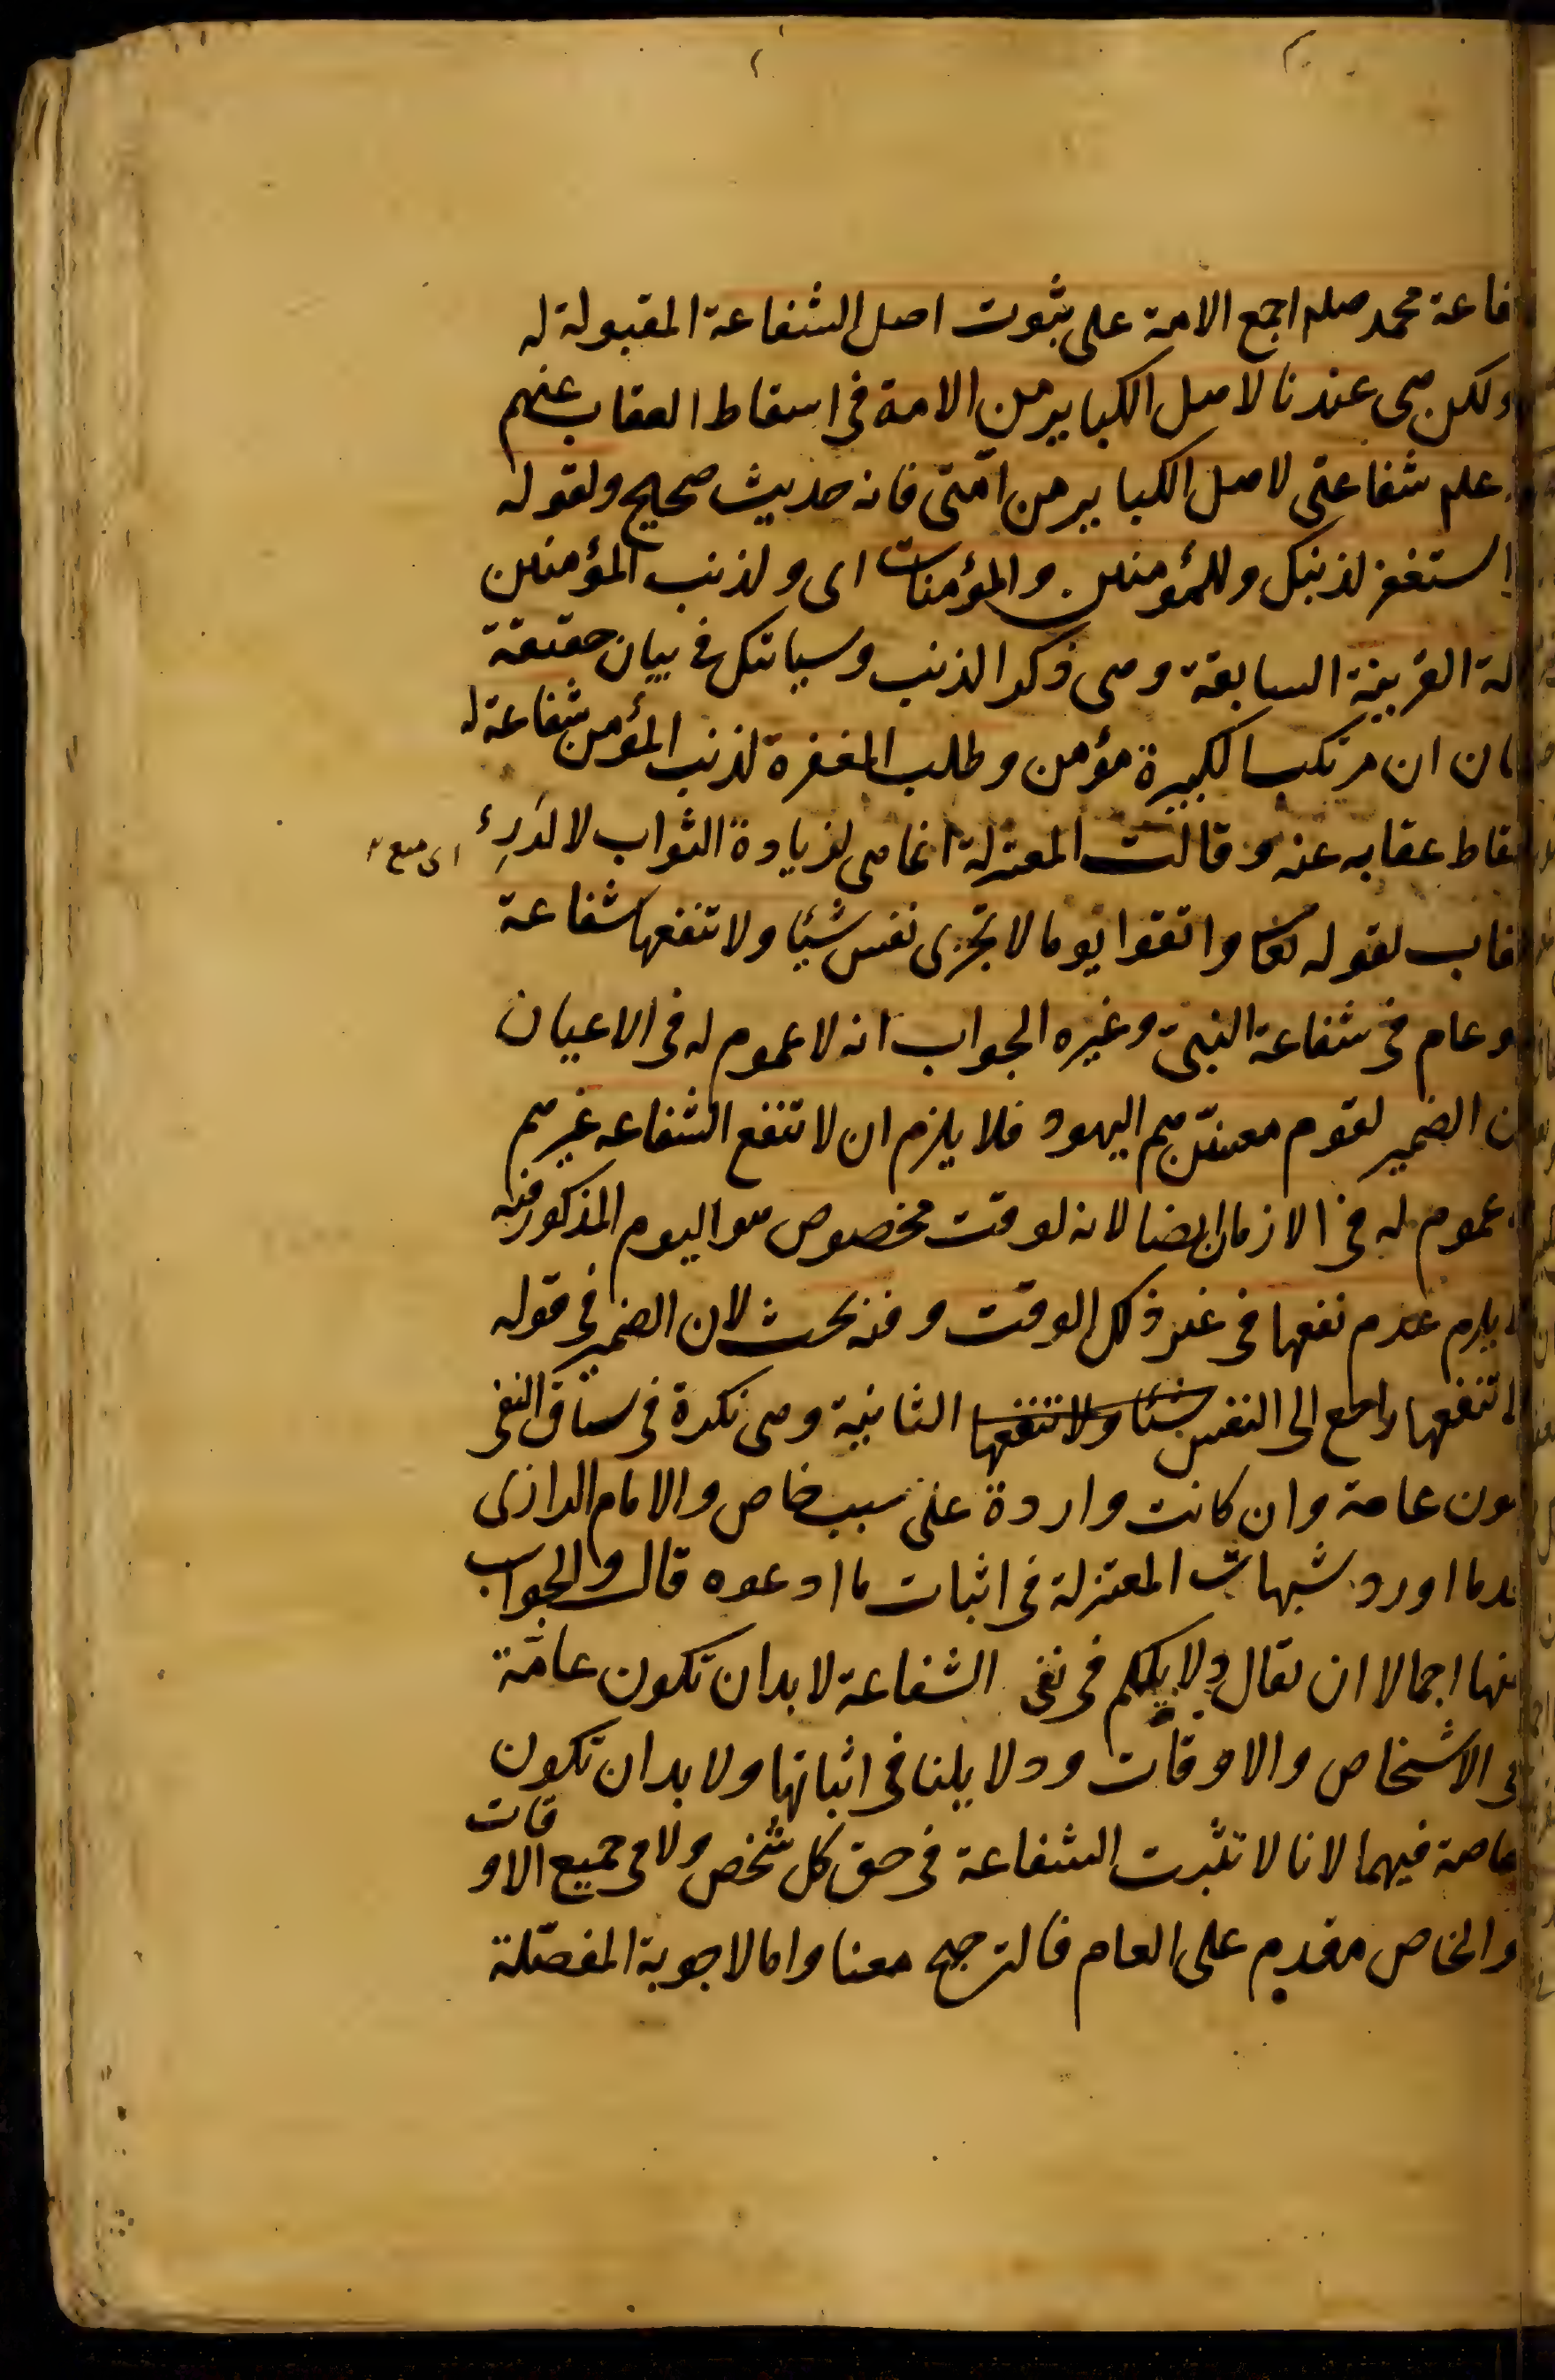 فاعة محمد صلم اجمع الامة على ثبوت اصل الشفاعة المقبولة له
ولكن هى عندنا لاهل الكباير من الامة فى اسقاط العقاب عنهم
علم شفاعتى لاهل الكباير من امّتى فانه حديث صحيح ولقوله
استغفر لذنبك وللمؤمنين والمؤمنات اى ولذنب المؤمنين
لة القرينة السابقة وهى ذكر الذنب وسياتيك فى بيان حقيقة
ان ان مرتكب الكبيرة مؤمن وطلب المغفرة لذنب المؤمن شفاعة له
قاط عقابه عنه وقالت المعتزلة انما هى لزيادة الثواب لا لدَرِء
قاب لقوله تعا واتقوا يوما لا تجزى نفس شيئا ولا تنفعها شفاعة
و عام فى شفاعة النبىّ وغيره الجواب انه لا عموم له فى الاعيان
ن الضمير لقوم معينّين هم اليهود فلا يلزم ان لا تنفع الشفاعه غيرهم
عموم له فى الازمان ايضا لانه لوقت مخصوص هو اليوم المذكور فيه
يلزم عدم نفعها فى غير ذلك الوقت وفيه بحث لان الضمير فى قوله
لا تنفعها راجع الى النفس شيئا ولا تنفعها الثانية وهى نكرة فى سياق النفى
ون عامة وان كانت واردة على سبب خاص والامام الرازى
دما اورد شبهات المعتزلة فى اثبات ما ادعوه قال والجواب
نها اجمالا ان يقال دلايلكم فى نفى الشفاعة لا بد ان تكون عامّة
فى الاشخاص والاوقات ودلايلنا فى اثباتها ولا بد ان تكون
خاصة فيهما لانا لا نثبت الشفاعة فى حق كل شخص ولا فى جميع الاوقات
والخاص مقدم على العام فالترجيح معنا واما الاجوبة المفصّلة